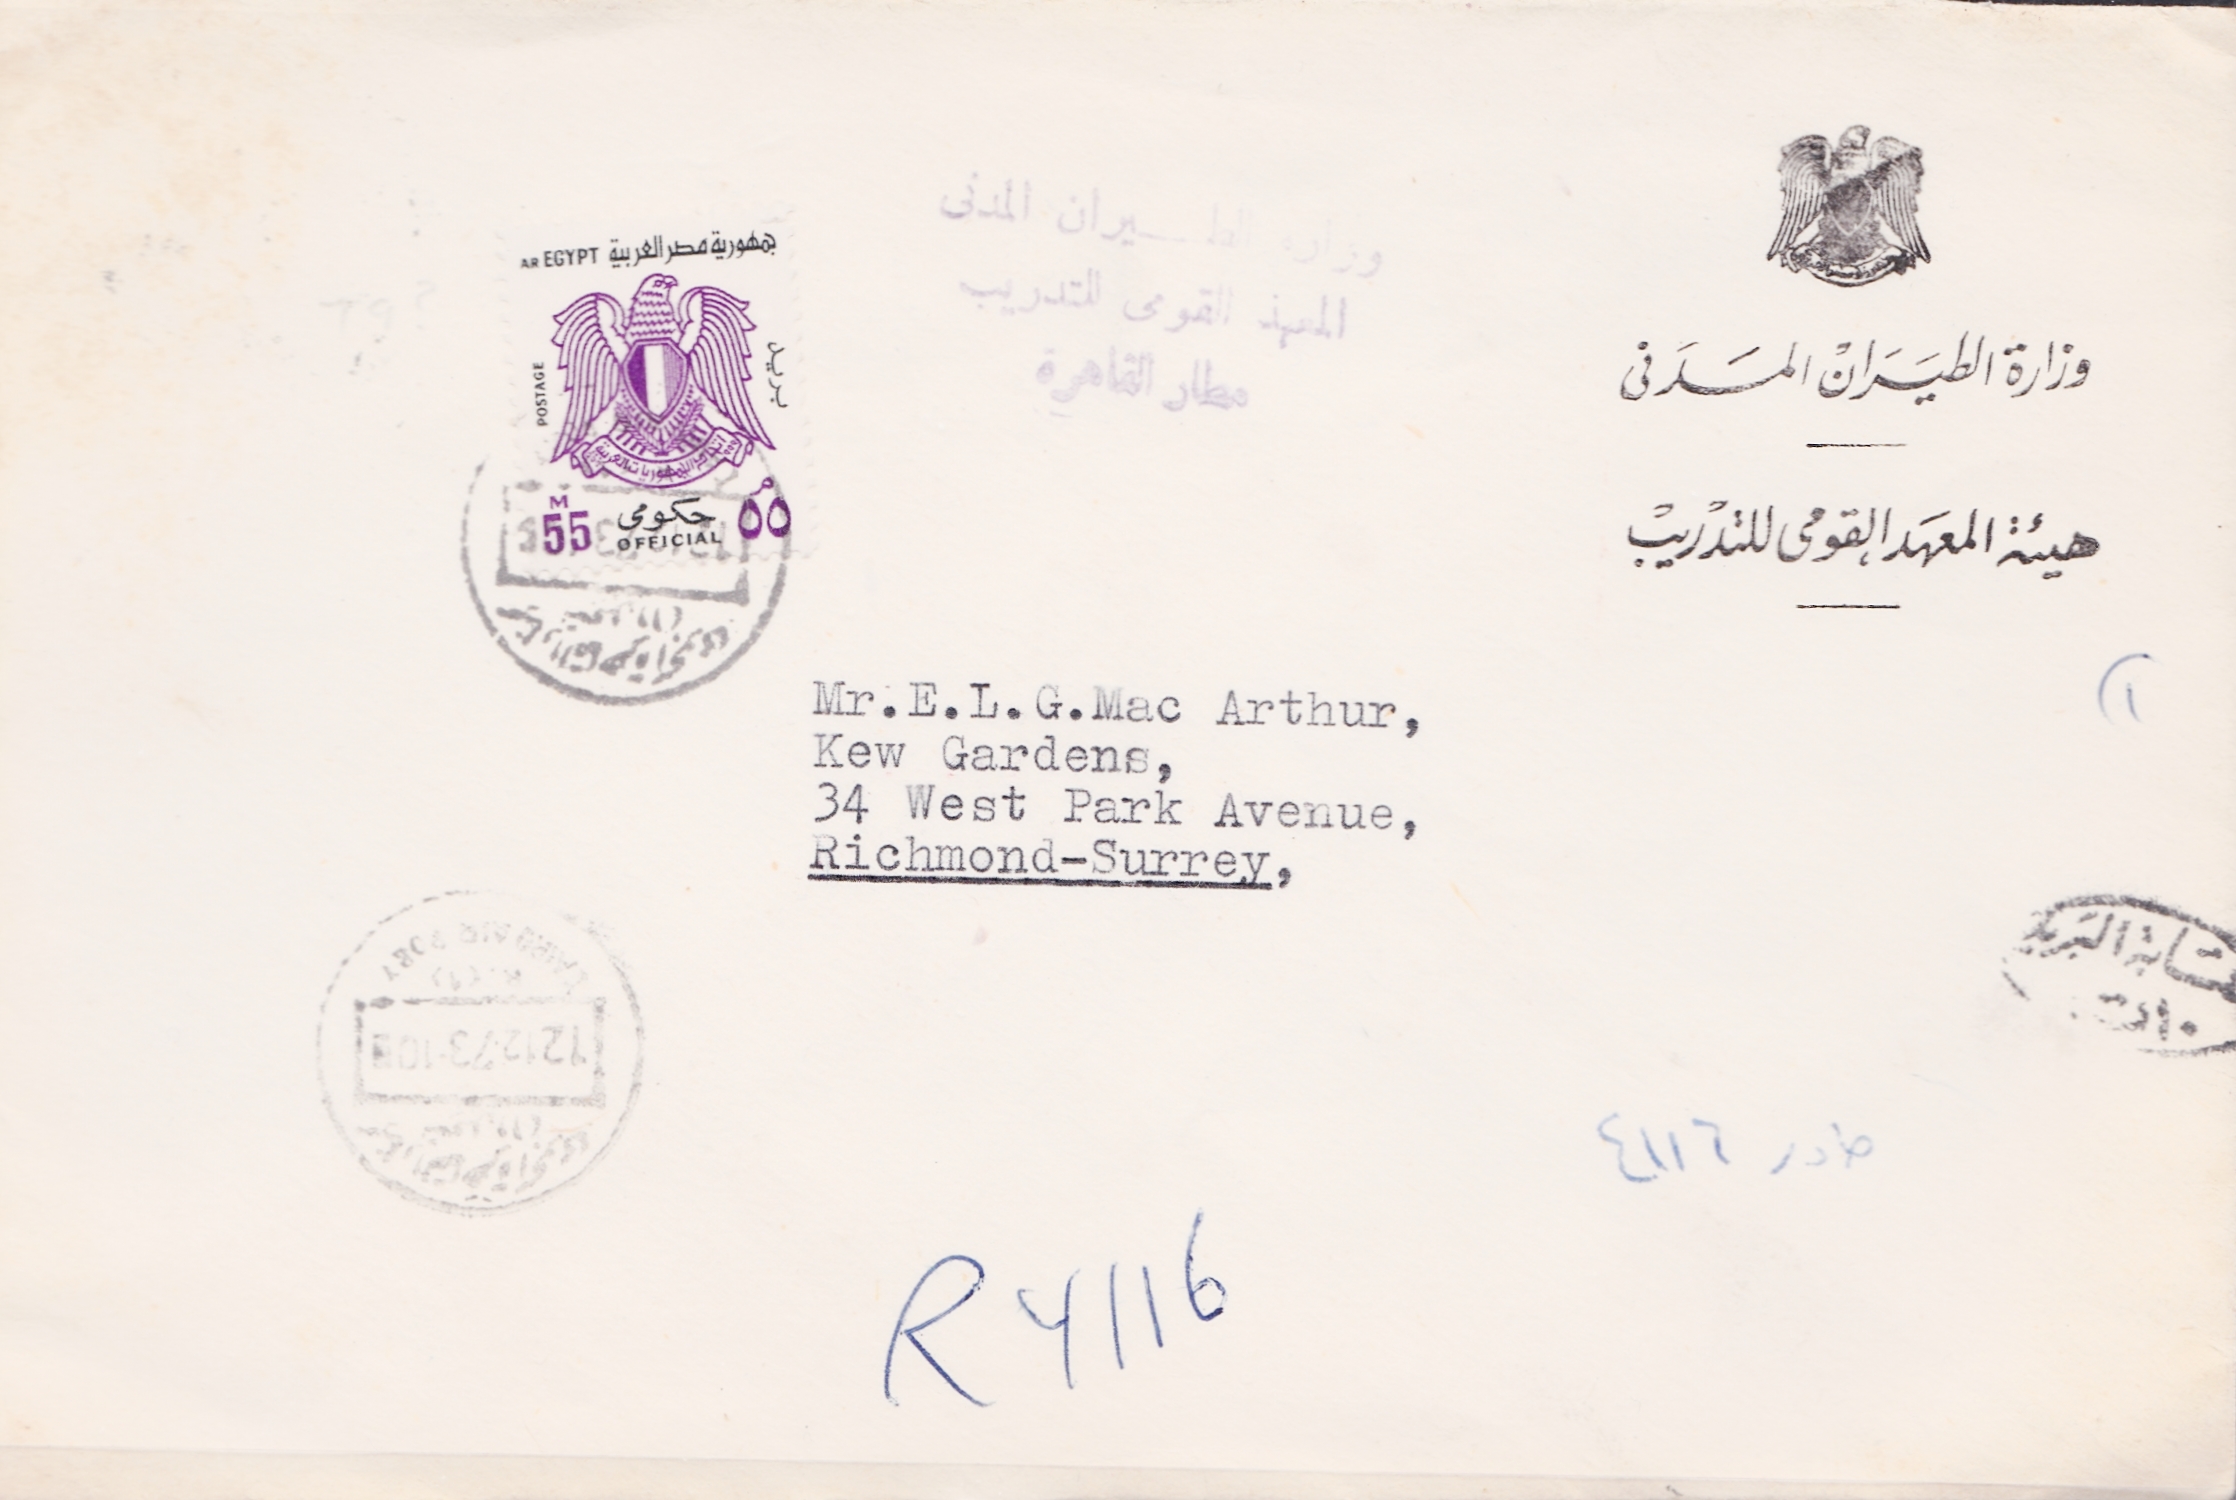 AR EGYPT جمهورية مصر العربية
POSTAGE
بريد
اتحاد الجمهوريات العربية
M
55
حكومى
OFFICIAL
م
٥٥
وزارة الطيران المدنى
المعهد القومى للتدريب
مطار القاهرة
وزارة الطيران المدنى
هيئة المعهد القومى للتدريب
١
Mr.E.L.G.Mac Arthur,
Kew Gardens,
34 West Park Avenue,
Richmond-Surrey,
CAIRO AIR PORT
R.(1)
12.12.73-10
البريد
صادر ٤١١٦
R 4116